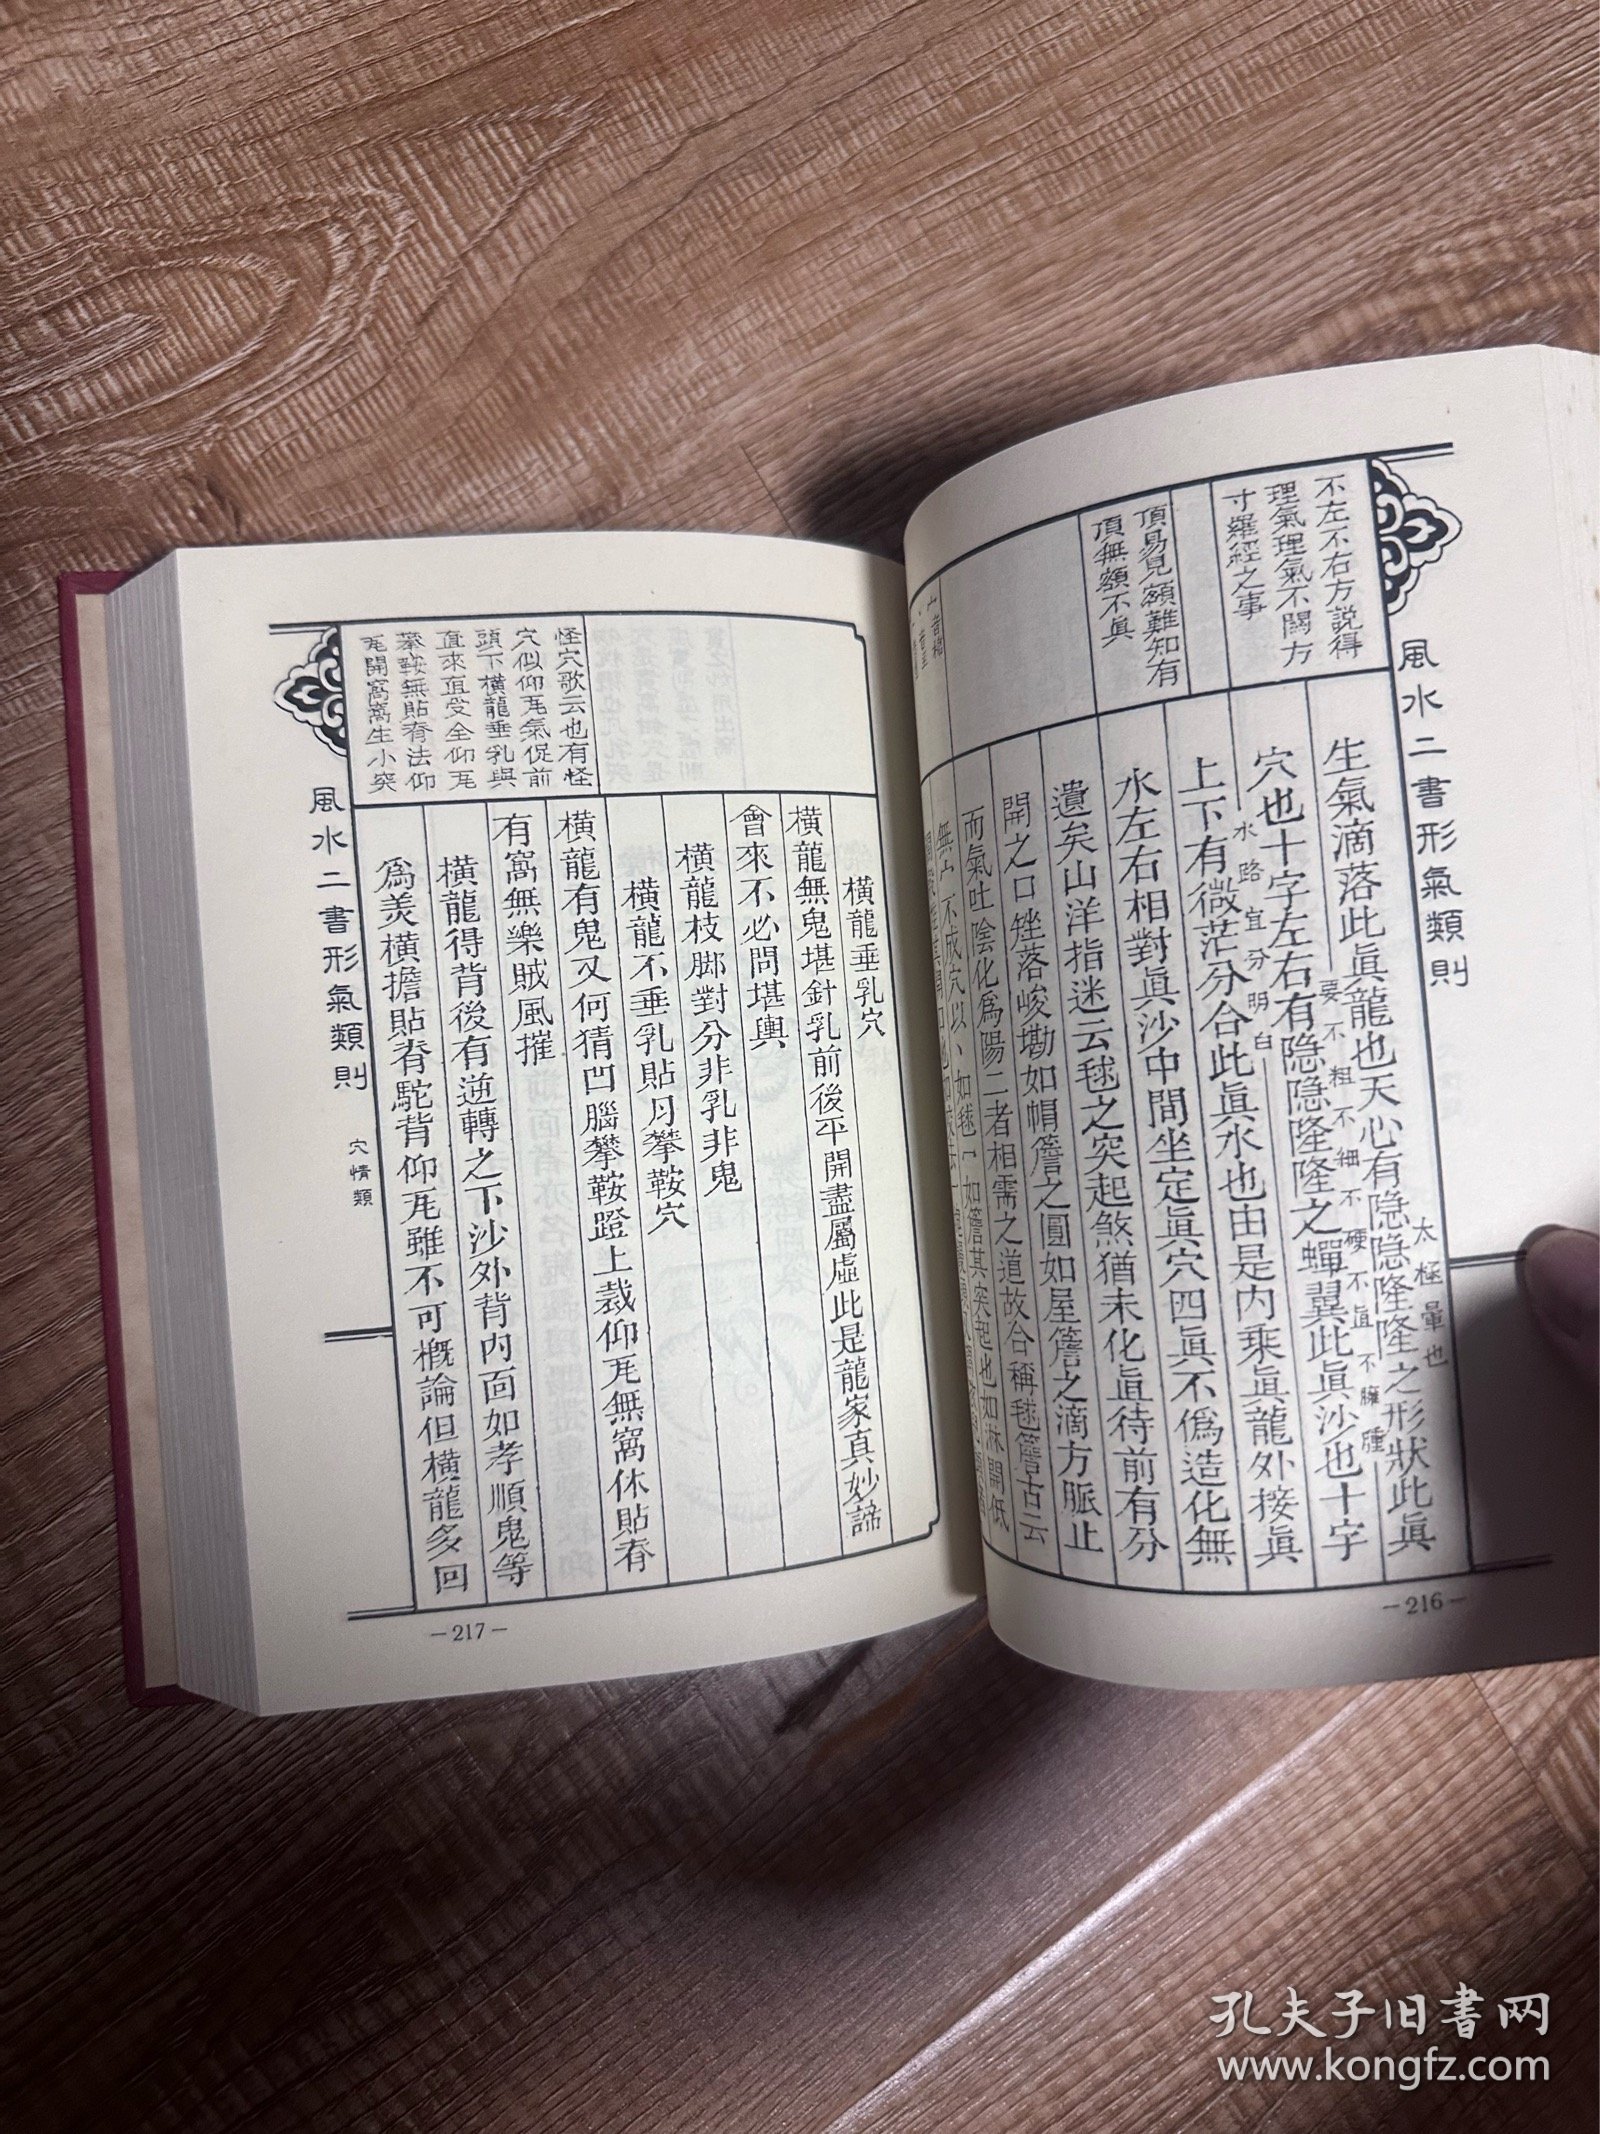 風水二書形氣類則
不左不右方說得
理氣理氣不關方
寸羅經之事
頂易見額難知有
頂無額不眞
生氣滴落此眞龍也天心有隐隐隆隆之形狀此眞
太極暈也
要不粗不細不硬不直不臃腫
穴也十字左右有隐隐隆隆之蟬翼此眞沙也十字
水路宜分明白
上下有微茫分合此眞水也由是内乘眞龍外接眞
水左右相對眞沙中間坐定眞穴四眞不僞造化無
遺矣山洋指迷云毬之突起煞猶未化直待前有分
開之口矬落峻墈如帽簷之圓如屋簷之滴方脈止
而氣吐陰化爲陽二者相需之道故合稱毬簷古云
－216－
風水二書形氣類則
穴情類
怪穴歌云也有怪
穴似仰瓦氣促前
頭下橫龍垂乳與
直來直受全仰瓦
攀鞍無貼脊法仰
瓦開窩窩生小突
橫龍垂乳穴
橫龍無鬼堪針乳前後平開盡屬虛此是龍家真妙諦
會來不必問堪輿
橫龍枝脚對分非乳非鬼
橫龍不垂乳貼月攀鞍穴
橫龍有鬼又何猜凹腦攀鞍蹬上裁仰瓦無窩休貼脊
有窩無樂賊風摧
橫龍得背後有逆轉之下沙外背内面如孝順鬼等
爲美橫擔貼脊駝背仰瓦雖不可概論但橫龍多回
－217－
孔夫子旧书网
www.kongfz.com